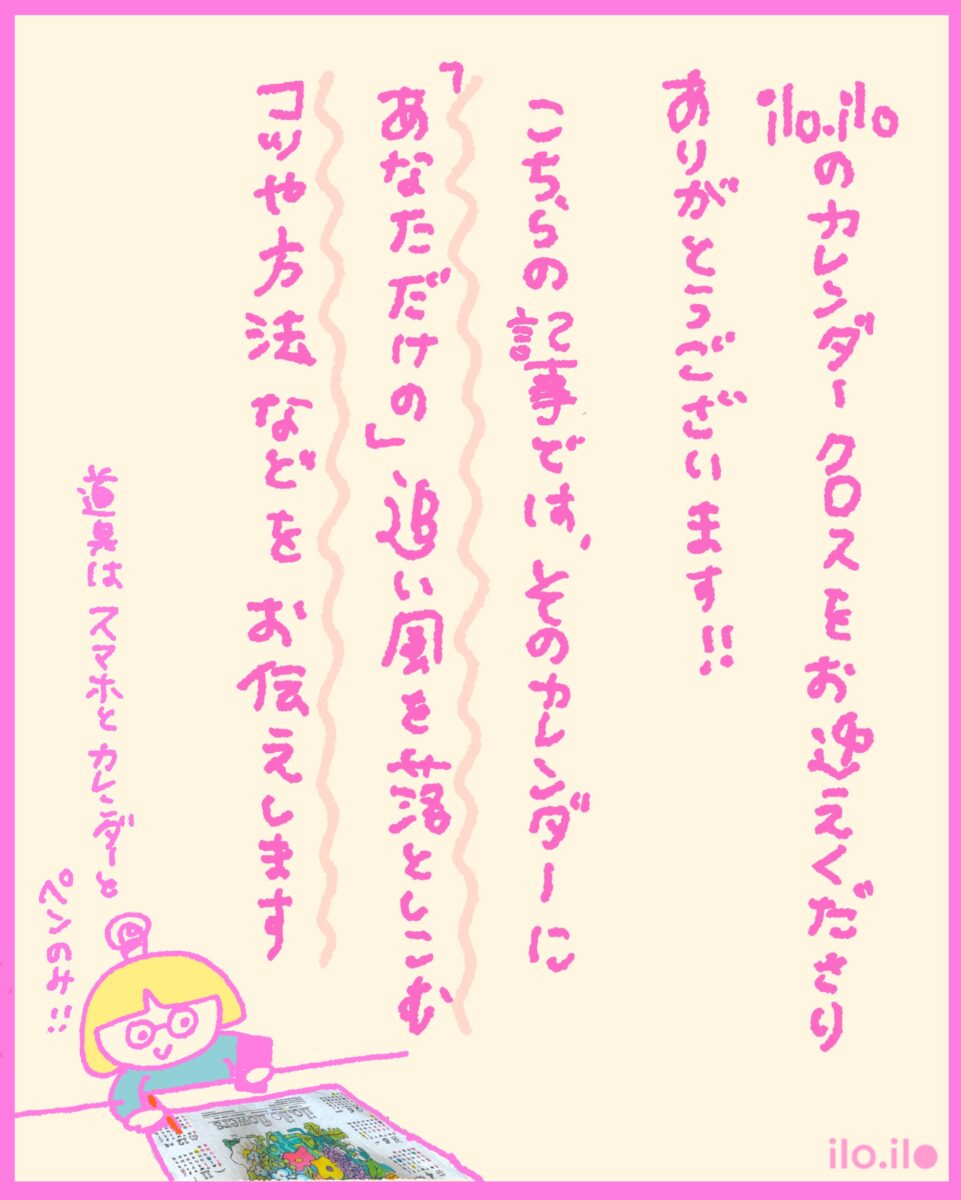 ilo.iloのカレンダークロスをお迎えくださり
ありがとうございます!!
こちらの記事では、そのカレンダーに
「あなただけの」追い風を落としこむ
コツや方法などをお伝えします
道具はスマホとカレンダーと
ペンのみ!!
ilo ilo flowers
ilo.ilo